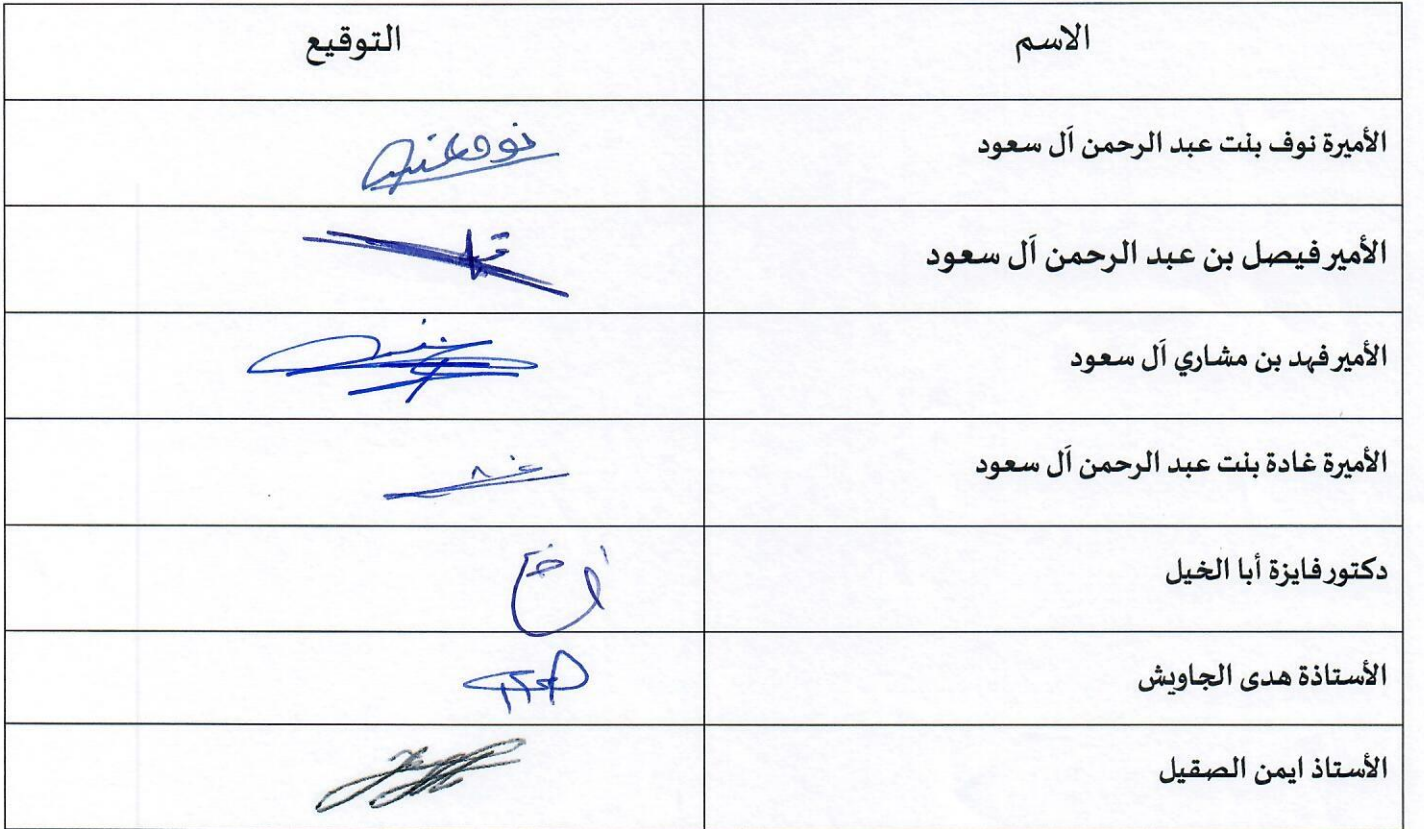 الاسم التوقيع
الأميرة نوف بنت عبد الرحمن آل سعود
الأمير فيصل بن عبد الرحمن آل سعود
الأمير فهد بن مشاري آل سعود
الأميرة غادة بنت عبد الرحمن آل سعود
دكتور فايزة أبا الخيل
الأستاذة هدى الجاويش
الأستاذ ايمن الصقيل